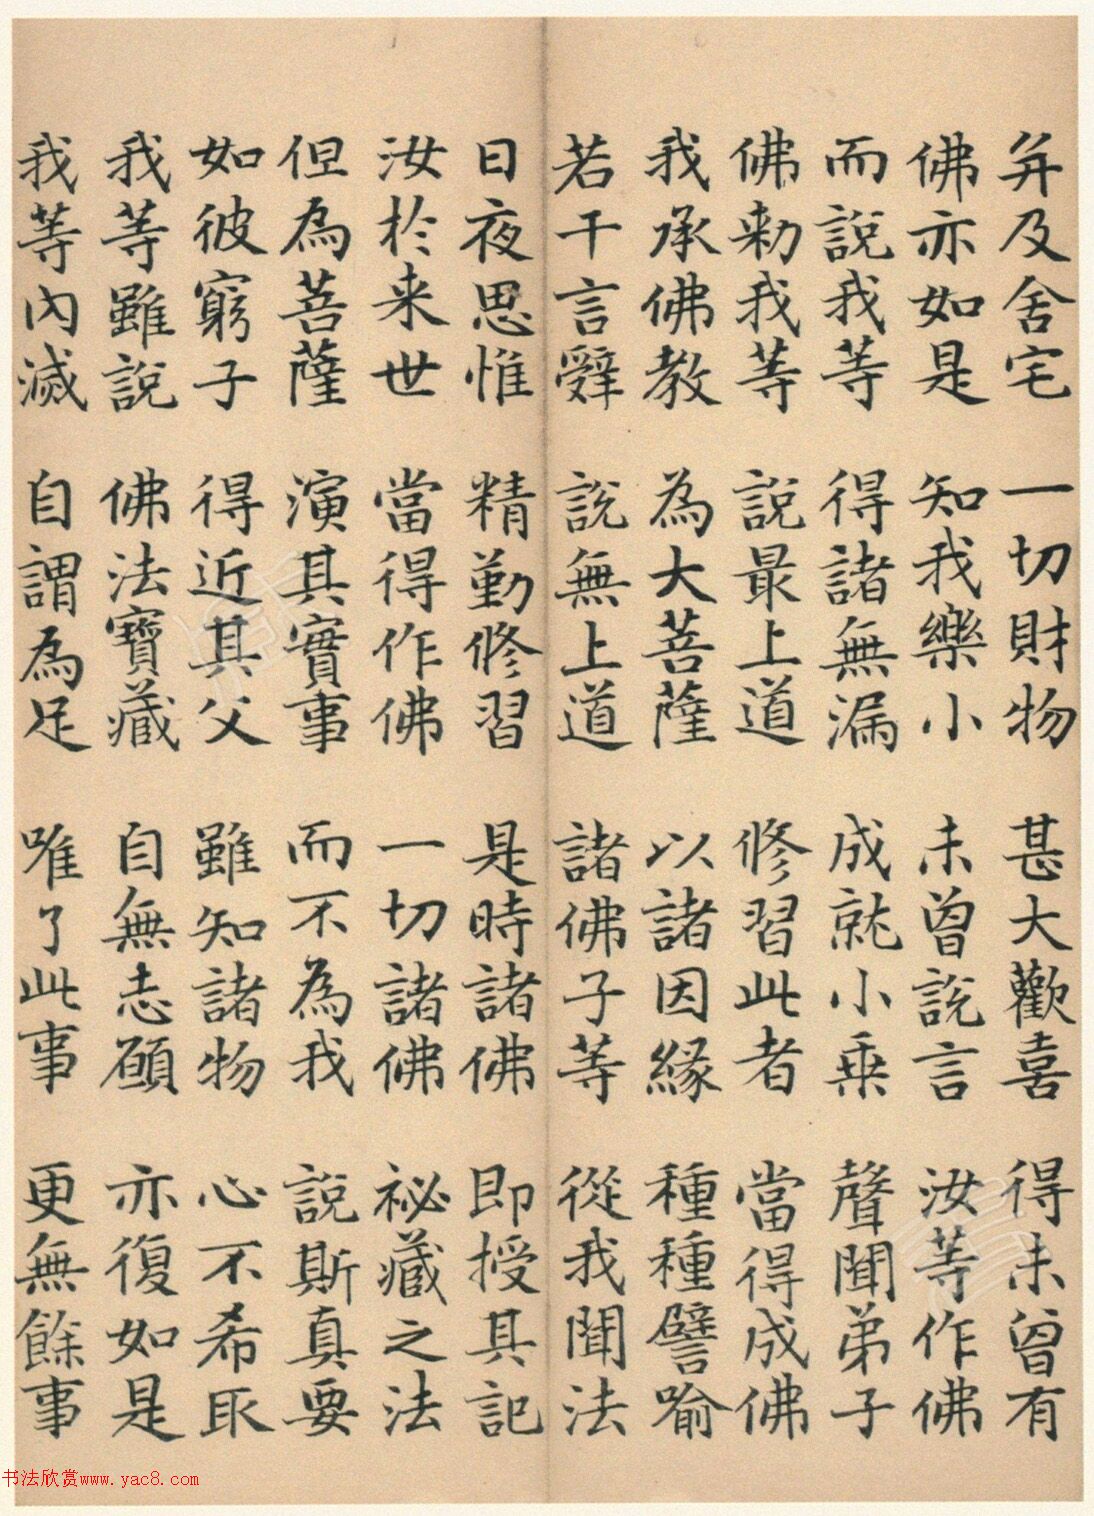 并及舍宅 一切財物 甚大歡喜 得未曾有
佛亦如是 知我樂小 未曾說言 汝等作佛
而說我等 得諸無漏 成就小乗 聲聞弟子
佛勑我等 說最上道 修習此者 當得成佛
我承佛教 為大菩薩 以諸因緣 種種譬喻
若干言辭 說無上道 諸佛子等 從我聞法
日夜思惟 精勤修習 是時諸佛 即授其記
汝於来世 當得作佛 一切諸佛 祕藏之法
但為菩薩 演其實事 而不為我 說斯真要
如彼窮子 得近其父 雖知諸物 心不希取
我等雖說 佛法寶藏 自無志願 亦復如是
我等內滅 自謂為足 唯了此事 更無餘事
书法欣赏www.yac8.com